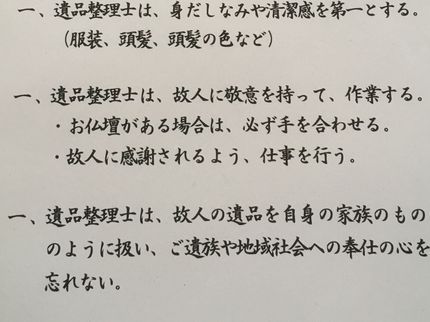 一、遺品整理士は、身だしなみや清潔感を第一とする。
（服装、頭髪、頭髪の色など）
一、遺品整理士は、故人に敬意を持って、作業する。
・お仏壇がある場合は、必ず手を合わせる。
・故人に感謝されるよう、仕事を行う。
一、遺品整理士は、故人の遺品を自身の家族のもの
のように扱い、ご遺族や地域社会への奉仕の心を
忘れない。